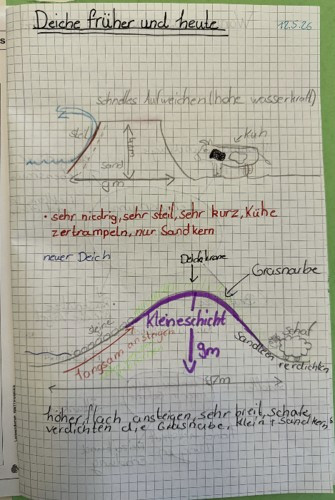 Deiche früher und heute
12.5.26
schnelles Aufweichen (hohe wasserkraft)
steil
4m
Kuh
Sand
9m
· sehr niedrig, sehr steil, sehr kurz, Kühe
zertrampeln, nur Sandkern
neuer Deich
Deichkrone
Grasnabe
Kleineschicht
9m
langsam ansteigen
Schaf
Sandkern
verdichten
höher, flach ansteigen, sehr breit, schafe,
verdichten die Grasnabe, Klein + Sandkern,